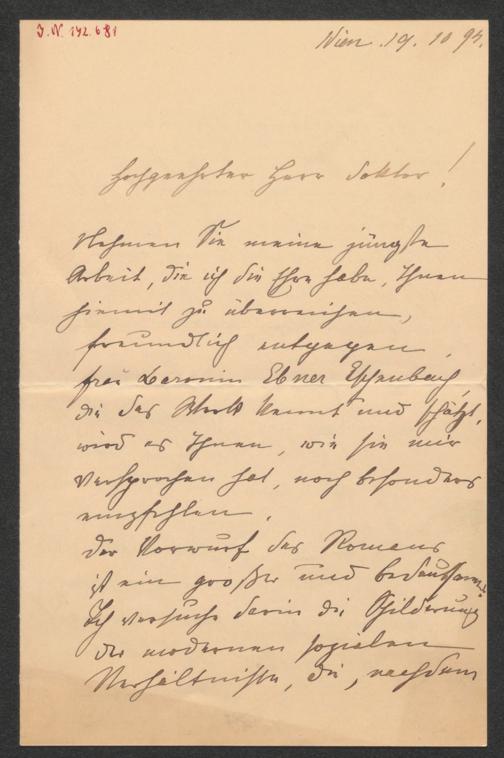 J.N. 142.681
Wien. 19. 10 94.
Hochgeehrter Herr Doktor!
Nehmen Sie meine jüngste
Arbeit, die ich die Ehre habe, Ihnen
hiemit zu überreichen,
freundlich entgegen.
Frau Baronin Ebner Eschenbach,
die das Werk kennt und schätzt,
wird es Ihnen, wie sie mir
versprochen hat, noch besonders
empfehlen.
Der Vorwurf des Romans
ist ein großer und bedeutsamer.
Ich versuche darin die Schilderung
der modernen sozialen
Verhältnisse, die, nachdem